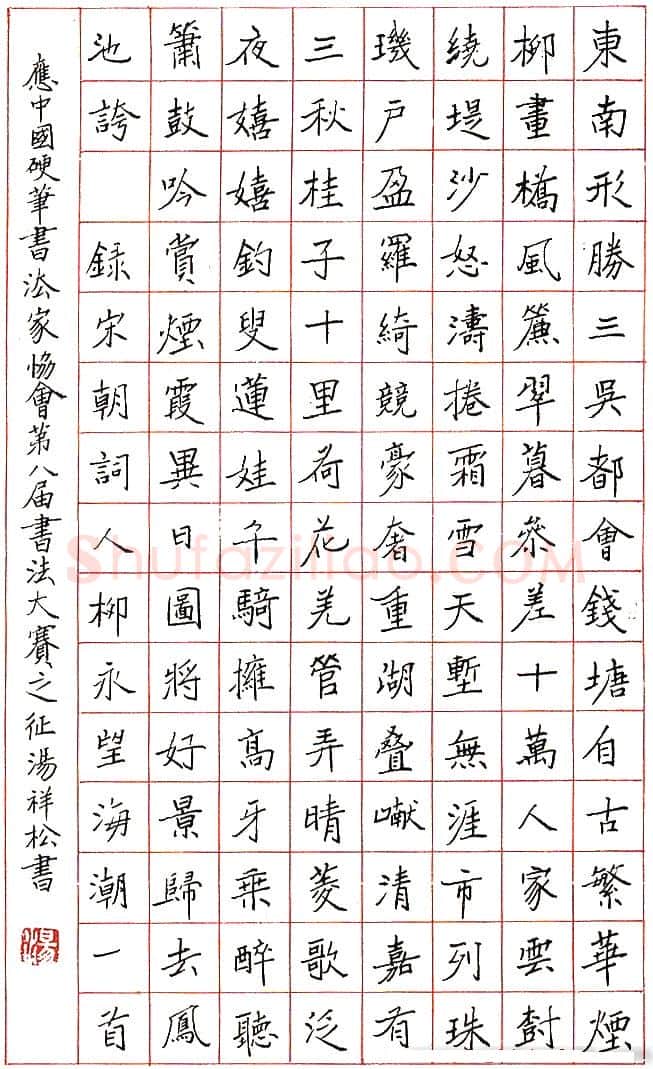 東南形勝三吳都會錢塘自古繁華煙
柳畫橋風簾翠暮叅差十萬人家雲樹
繞堤沙怒濤捲霜雪天塹無涯市列珠
璣戶盈羅綺競豪奢重湖叠巘清嘉有
三秋桂子十里荷花羌管弄晴菱歌泛
夜嬉嬉釣叟蓮娃千騎擁高牙乘醉聽
簫鼓吟賞煙霞異日圖將好景歸去鳳
池誇 録宋朝詞人柳永望海潮一首
應中國硬筆書法家協會第八届書法大賽之征湯祥松書
Shufaziliao.COM